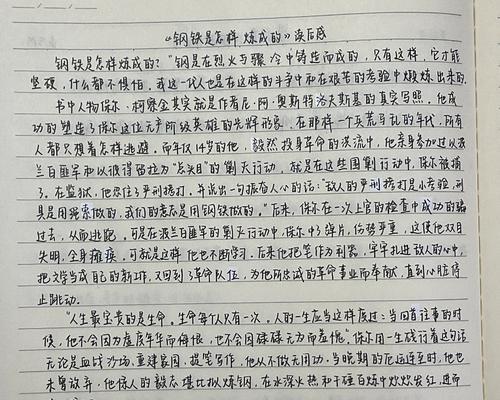 《钢铁是怎样炼成的》读后感
钢铁是怎样炼成的？"钢是在烈火与骤冷中铸造而成的，只有这样，它才能
坚硬，什么都不惧怕，我这一代人也是在这样的斗争中和在艰苦的考验中煅炼出来的。
书中人物保尔·柯察金其实就是作者尼·阿·奥斯特洛夫斯基的真实写照。他成
功的塑造了保尔这位无产阶级英雄的光辉形象，在那样一个兵荒马乱的年代，所有
人都只想着怎样逃避，而年仅14岁的他，毅然投身革命的洪流中，他亲身参加过以波
兰白匪军和以彼得留拉为"头目"的剿灭行动，就是在这些围剿行动中，保尔被捕
了。在监狱，他忍住了严刑拷打，并说出一句振奋人心的话："敌人的严刑拷打是小考验，刑
具是用 做的，我们的意志是用钢铁做的。"后来，保尔在一次上官的检查中成功的骗
过去，从而逃脱。可是在波兰白匪军的剿灭行动中，保尔中了碎片，伤势严重，这使他双目
失明，全身瘫痪，可就是这样他也不断学习。后来他把笔作为利器，牢牢扎进敌人的心中，
把文学当成自己的新工作，又回到了革命队伍，为他所忠诚的革命事业而奉献，直到心脏停
止跳动。
"人生最宝贵的是生命。生命每个人只有一次，人的一生应当这样度过：当回首往事的时
候，他不会因为虚度年华而悔恨，也不会因碌碌无为而羞愧"保尔用一生践行着这句话
无论是血战沙场，重建家园，提笔写作，他从不做无用功。当晚期的厄运连至时，他也
未曾放弃，他惊人的毅志堪比拟炼钢，在水深火热和千锤百炼中炊炊发红，进而